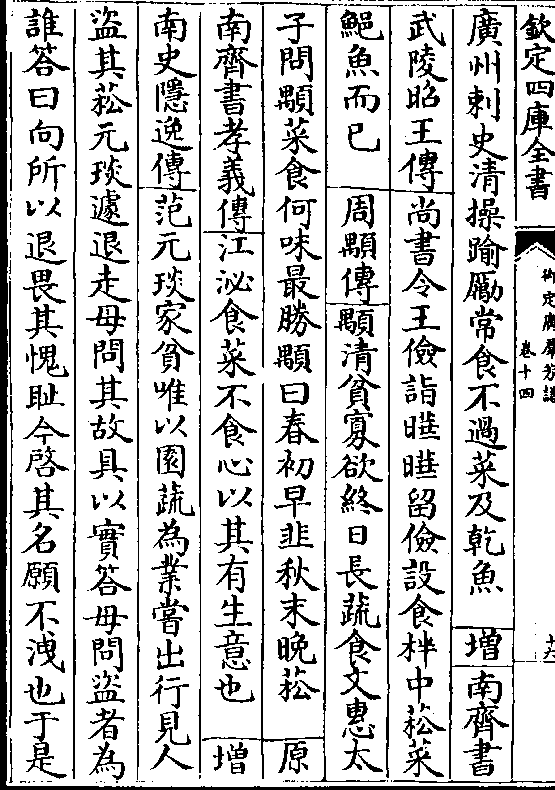 欽定四庫全書
御定廣羣芳譜
卷十四
廣州刺史清操踰勵常食不過菜及乾魚 増 南齊書
武陵昭王傳尚書令王儉詣曄曄留儉設食柈中菘菜
鮑魚而已 周顒傳顒清貧寡欲終日長蔬食文惠太
子問顒菜食何味最勝顒曰春初早韭秋末晚菘 原
南齊書孝義傳江泌食菜不食心以其有生意也 増
南史隱逸傳范元琰家貧唯以園蔬為業嘗出行見人
盜其菘元琰遽退走母問其故具以實答母問盜者為
誰答曰向所以退畏其愧耻今啓其名願不洩也于是